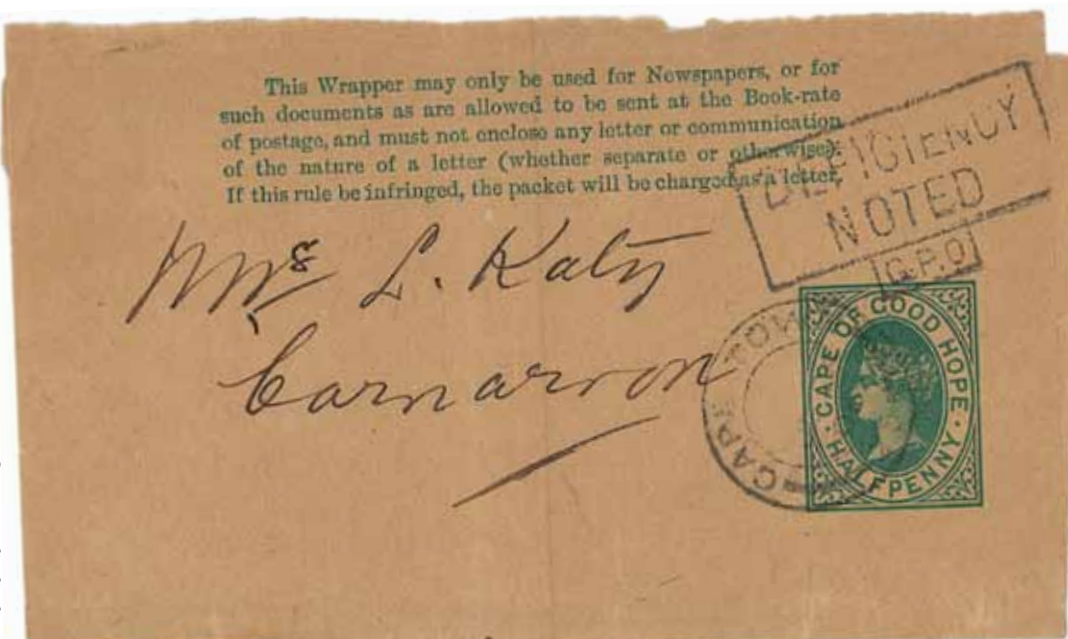 This Wrapper may only be used for Newspapers, or for
such documents as are allowed to be sent at the Book-rate
of postage, and must not enclose any letter or communication
of the nature of a letter (whether separate or otherwise).
If this rule be infringed, the packet will be charged as a letter.
DEFICIENCY
NOTED
G.P.O
Mrs L. Katz
Carnarvon
CAPE TOWN
CAPE OF GOOD HOPE
HALFPENNY